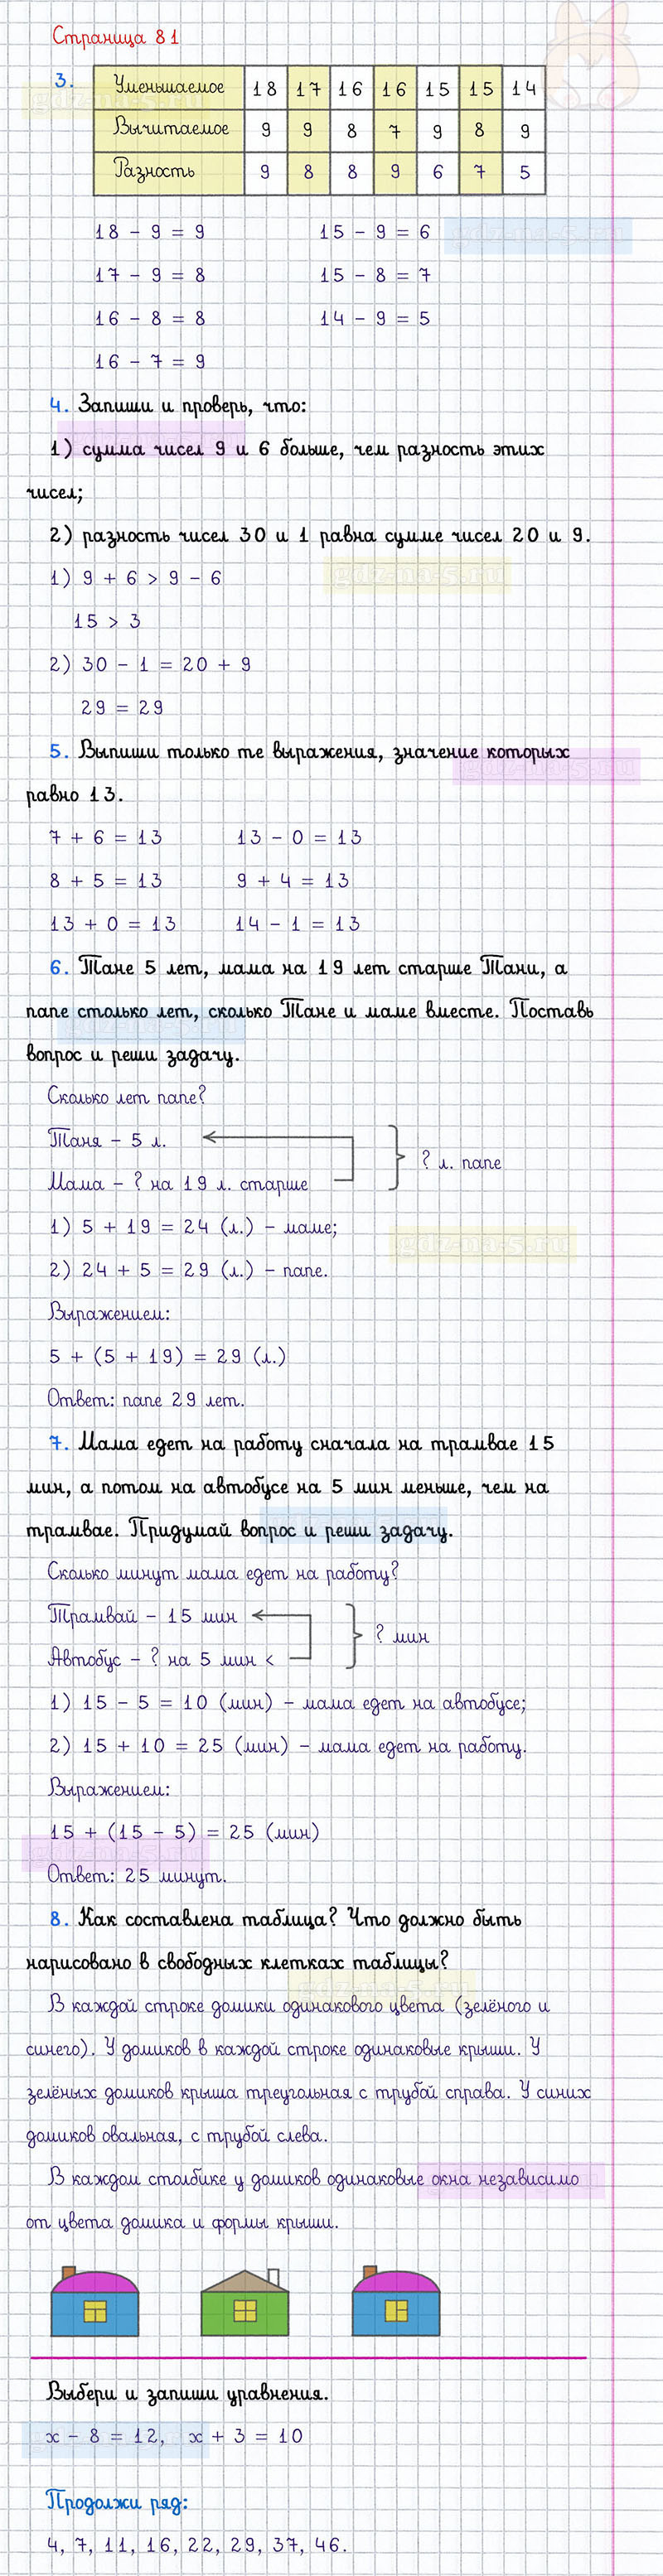 Страница 81
3. Уменьшаемое 18 17 16 16 15 15 14
Вычитаемое 9 9 8 7 9 8 9
Разность 9 8 8 9 6 7 5
18 - 9 = 9 15 - 9 = 6
gdz-na-5.ru
17 - 9 = 8 15 - 8 = 7
16 - 8 = 8 14 - 9 = 5
16 - 7 = 9
4. Запиши и проверь, что:
1) сумма чисел 9 и 6 больше, чем разность этих
чисел;
2) разность чисел 30 и 1 равна сумме чисел 20 и 9.
1) 9 + 6 > 9 - 6
gdz-na-5.ru
15 > 3
2) 30 - 1 = 20 + 9
29 = 29
5. Выпиши только те выражения, значение которых
gdz-na-5.ru
равно 13.
7 + 6 = 13 13 - 0 = 13
8 + 5 = 13 9 + 4 = 13
13 + 0 = 13 14 - 1 = 13
6. Тане 5 лет, мама на 19 лет старше Тани, а
папе столько лет, сколько Тане и маме вместе. Поставь
вопрос и реши задачу.
Сколько лет папе?
Таня - 5 л.
? л. папе
Мама - ? на 19 л. старше
1) 5 + 19 = 24 (л.) - маме;
gdz-na-5.ru
2) 24 + 5 = 29 (л.) - папе.
Выражением:
5 + (5 + 19) = 29 (л.)
Ответ: папе 29 лет.
7. Мама едет на работу сначала на трамвае 15
мин, а потом на автобусе на 5 мин меньше, чем на
трамвае. Придумай вопрос и реши задачу.
Сколько минут мама едет на работу?
Трамвай - 15 мин
? мин
Автобус - ? на 5 мин <
1) 15 - 5 = 10 (мин) - мама едет на автобусе;
2) 15 + 10 = 25 (мин) - мама едет на работу.
Выражением:
15 + (15 - 5) = 25 (мин)
Ответ: 25 минут.
8. Как составлена таблица? Что должно быть
нарисовано в свободных клетках таблицы?
В каждой строке домики одинакового цвета (зелёного и
синего). У домиков в каждой строке одинаковые крыши. У
зелёных домиков крыша треугольная с трубой справа. У синих
домиков овальная, с трубой слева.
В каждом столбике у домиков одинаковые окна независимо
от цвета домика и формы крыши.
Выбери и запиши уравнения.
x - 8 = 12, x + 3 = 10
Продолжи ряд:
4, 7, 11, 16, 22, 29, 37, 46.